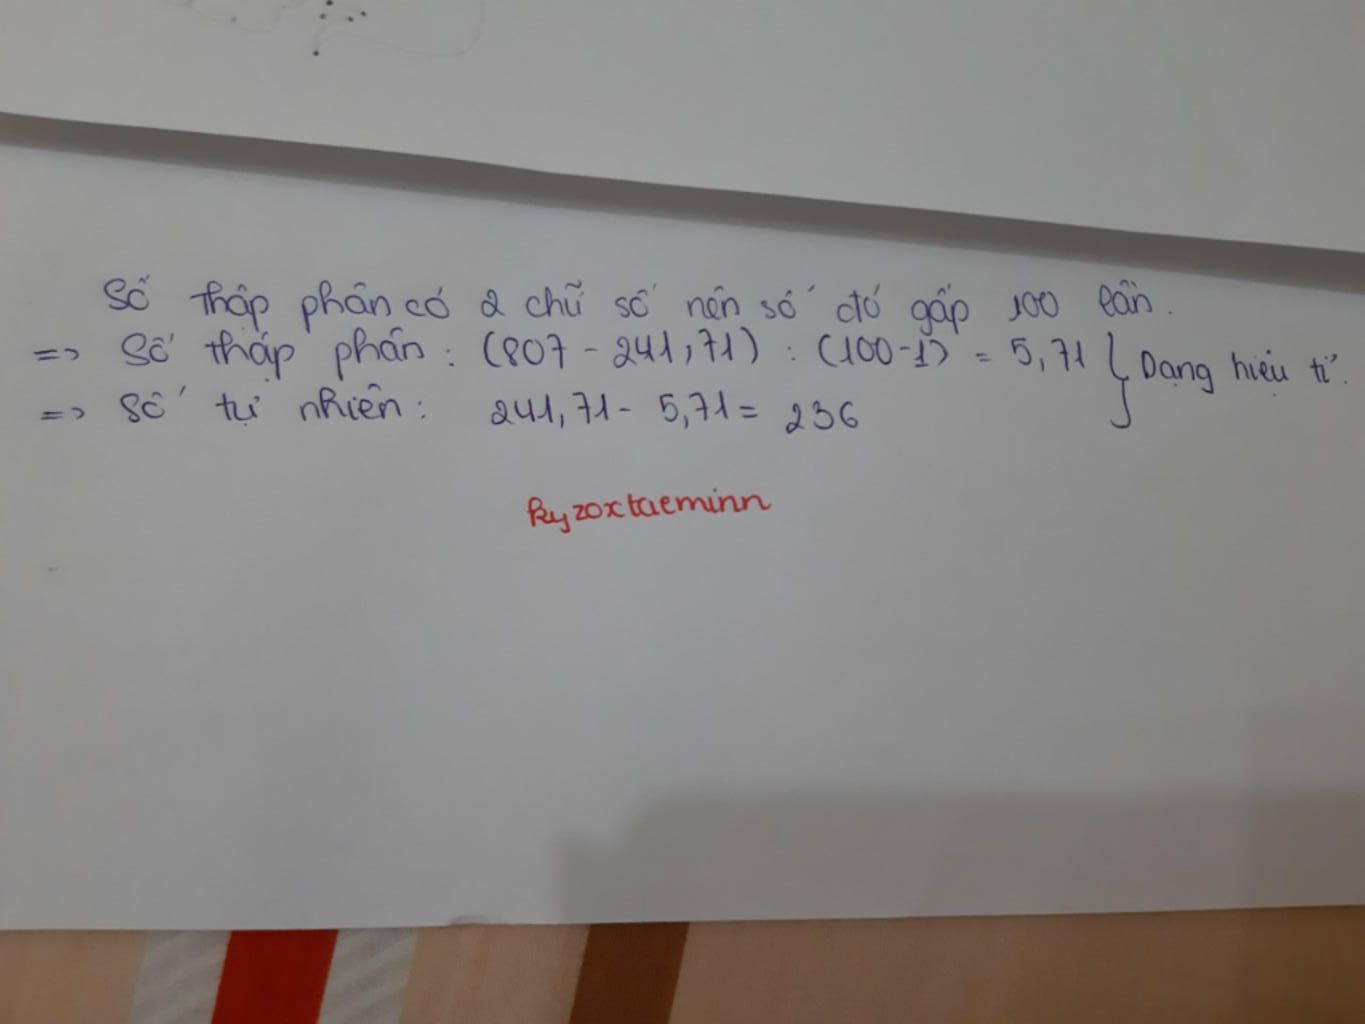 Số thập phân có 2 chữ số nên số đó gấp 100 lần.
=> Số thập phân : (807 - 241,71) : (100-1) = 5,71 } Dạng hiệu tỉ.
=> Số tự nhiên : 241,71 - 5,71 = 236
kyzoxtaeminn